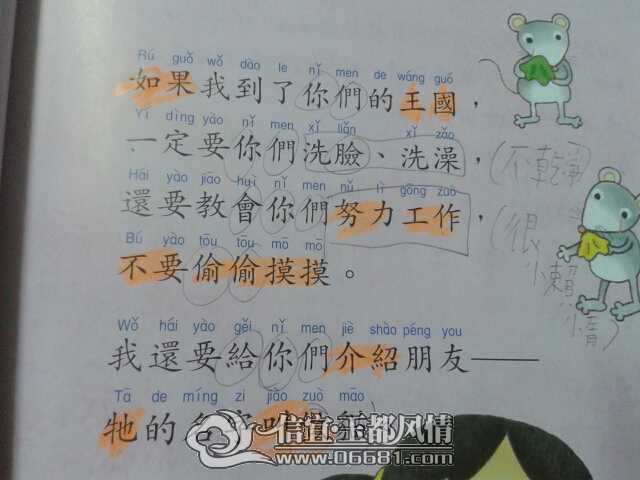 Rú guǒ wǒ dào le nǐ men de wáng guó
如果我到了你們的王國，
Yí dìng yào nǐ men xǐ liǎn xǐ zǎo
一定要你們洗臉、洗澡，
(不乾淨)
Hái yào jiāo huì nǐ men nǔ lì gōng zuò
還要教會你們努力工作，
(很懶惰)
Bú yào tōu tou mō mō
不要偷偷摸摸。
Wǒ hái yào gěi nǐ men jiè shào péng you
我還要給你們介紹朋友——
Tā de míng zi jiào zuò māo
牠的名字叫做貓
信宜·玉都风情
www.06681.com